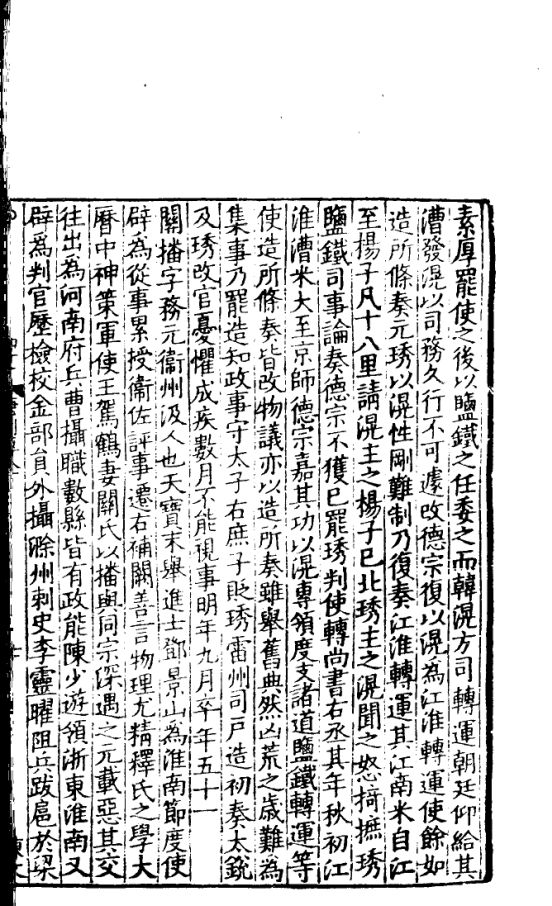 素厚罷使之後以鹽鐵之任委之而韓滉方司轉運朝廷仰給其
漕發滉以司務久行不可遽改德宗復以滉為江淮轉運使餘如
造所條奏元琇以滉性剛難制乃復奏江淮轉運其江南米自江
至楊子凡十八里請滉主之楊子已北琇主之滉聞之怒掎摭琇
鹽鐵司事論奏德宗不獲已罷琇判使轉尚書右丞其年秋初江
淮漕米大至京師德宗嘉其功以滉專領度支諸道鹽鐵轉運等
使造所條奏皆改物議亦以造所奏雖舉舊典然凶荒之歲難為
集事乃罷造知政事守太子右庶子貶琇雷州司戶造初奏太銳
及琇改官憂懼成疾數月不能視事明年九月卒年五十一
關播字務元衞州汲人也天寶末舉進士鄧景山為淮南節度使
辟為從事累授衞佐評事遷右補闕善言物理尤精釋氏之學大
曆中神策軍使王駕鶴妻關氏以播與同宗深遇之元載惡其交
往出為河南府兵曹攝職數縣皆有政能陳少遊領浙東淮南又
辟為判官歷檢校金部員外攝滁州刺史李靈曜阻兵跋扈於梁